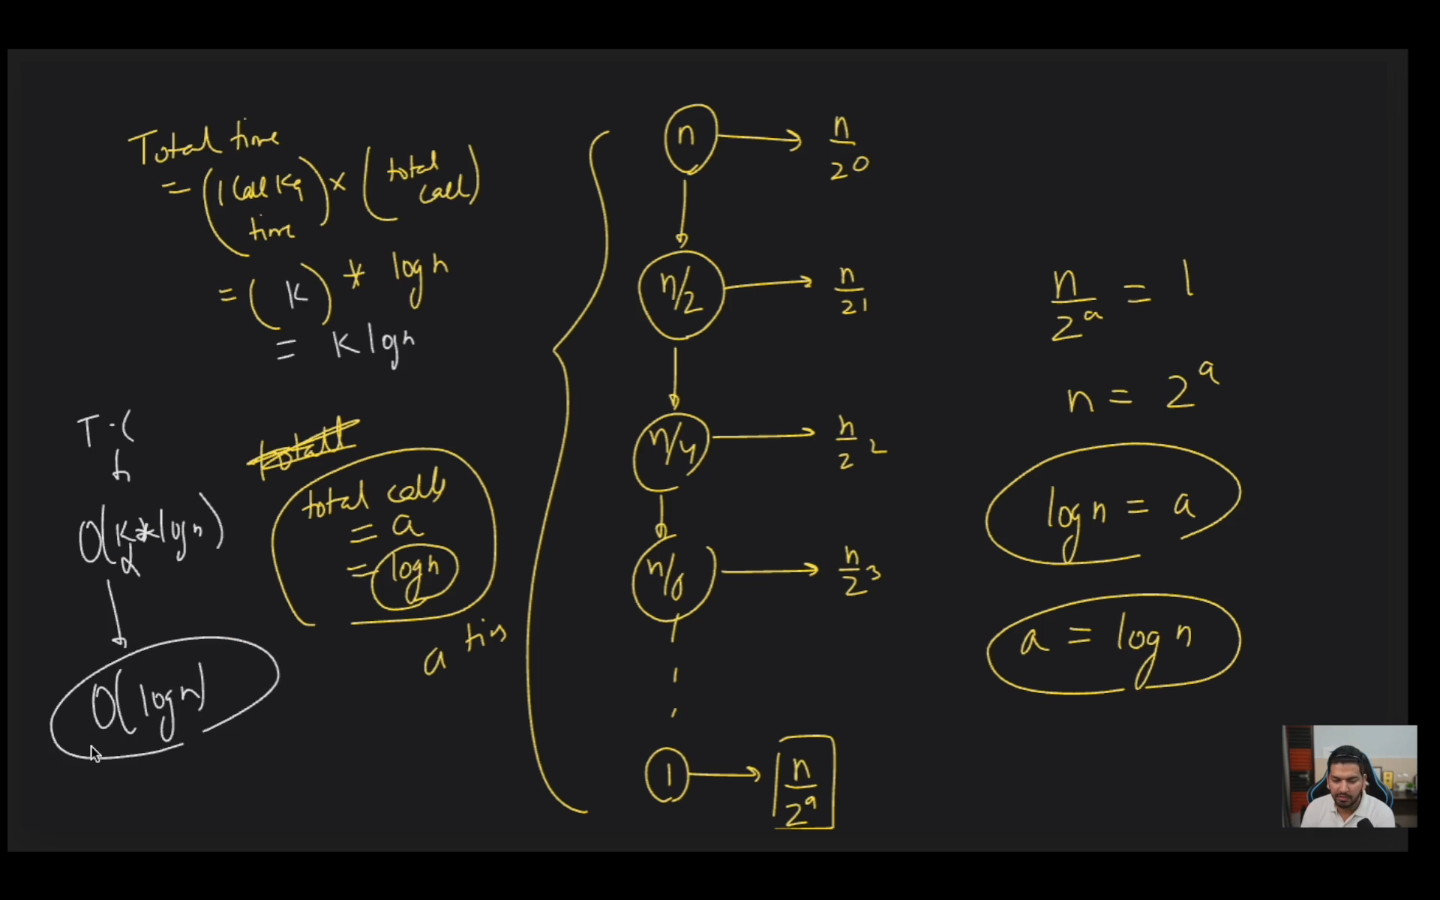 Total time
= (1 Call Kq time) × (total call)
= (K) * log n
= K log n
T.C
O(K*log n)
O(log n)
total calls
= a
= log n
a
n → n/2^0
n/2 → n/2^1
n/4 → n/2^2
n/8 → n/2^3
1 → n/2^a
n/2^a = 1
n = 2^a
log n = a
a = log n